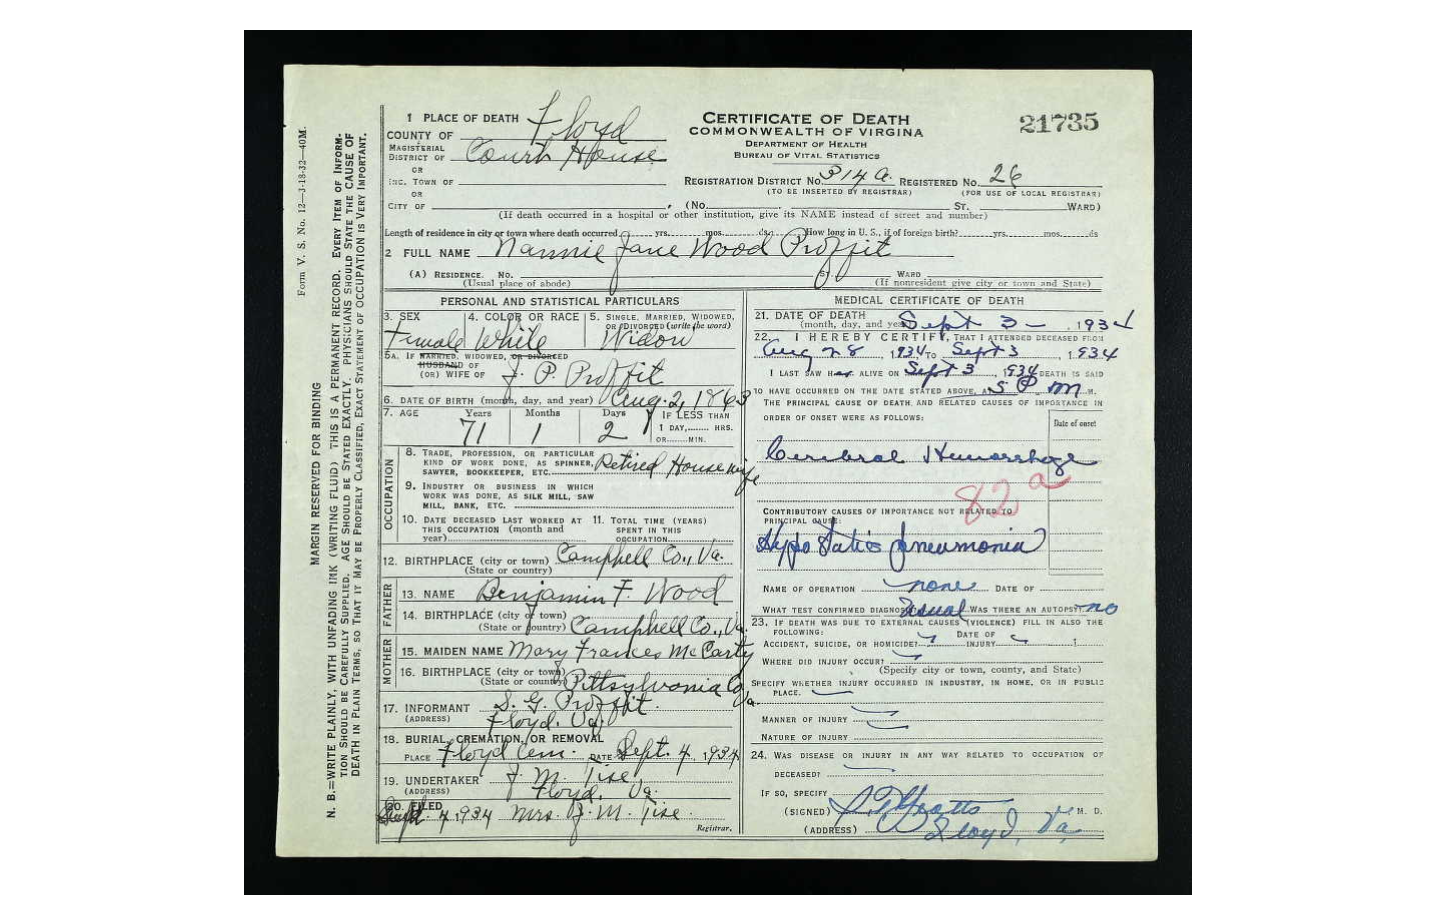 Form V. S. No. 12—J-18-32—40M.
MARGIN RESERVED FOR BINDING
N. B.—WRITE PLAINLY, WITH UNFADING INK (WRITING FLUID). THIS IS A PERMANENT RECORD. EVERY ITEM OF INFORM-
TION SHOULD BE CAREFULLY SUPPLIED. AGE SHOULD BE STATED EXACTLY. PHYSICIANS SHOULD STATE THE CAUSE OF
DEATH IN PLAIN TERMS, SO THAT IT MAY BE PROPERLY CLASSIFIED. EXACT STATEMENT OF OCCUPATION IS VERY IMPORTANT.
1 PLACE OF DEATH
COUNTY OF Floyd
MAGISTERIAL
DISTRICT OF Court House
OR
INC. TOWN OF
OR
CITY OF
CERTIFICATE OF DEATH
COMMONWEALTH OF VIRGINA
DEPARTMENT OF HEALTH
BUREAU OF VITAL STATISTICS
21735
REGISTRATION DISTRICT No. 314a. REGISTERED No. 26
(TO BE INSERTED BY REGISTRAR) (FOR USE OF LOCAL REGISTRAR)
(No. ST. WARD)
(If death occurred in a hospital or other institution, give its NAME instead of street and number)
Length of residence in city or town where death occurred yrs. mos. ds. How long in U. S., if of foreign birth? yrs. mos. ds
2 FULL NAME Nannie Jane Wood Proffit
(A) RESIDENCE. No. St. WARD
(Usual place of abode) (If nonresident give city or town and State)
PERSONAL AND STATISTICAL PARTICULARS
3. SEX 4. COLOR OR RACE 5. SINGLE, MARRIED, WIDOWED,
OR DIVORCED (write the word)
Female White Widow
5A. IF MARRIED, WIDOWED, OR DIVORCED
HUSBAND OF
(OR) WIFE OF J. P. Proffit
6. DATE OF BIRTH (month, day, and year) Aug. 2, 1863
7. AGE Years Months Days IF LESS THAN
71 1 2 1 DAY, HRS.
OR MIN.
OCCUPATION
8. TRADE, PROFESSION, OR PARTICULAR
KIND OF WORK DONE, AS SPINNER,
SAWYER, BOOKKEEPER, ETC. Retired Housewife
9. INDUSTRY OR BUSINESS IN WHICH
WORK WAS DONE, AS SILK MILL, SAW
MILL, BANK, ETC.
10. DATE DECEASED LAST WORKED AT 11. TOTAL TIME (YEARS)
THIS OCCUPATION (month and SPENT IN THIS
year) OCCUPATION
12. BIRTHPLACE (city or town) Campbell Co., Va.
(State or country)
FATHER
13. NAME Benjamin F. Wood
14. BIRTHPLACE (city or town)
(State or country) Campbell Co., Va.
MOTHER
15. MAIDEN NAME Mary Frances McCarty
16. BIRTHPLACE (city or town)
(State or country) Pittsylvania Co Va.
17. INFORMANT S. G. Proffit.
(ADDRESS) Floyd, Va.
18. BURIAL, CREMATION, OR REMOVAL
PLACE Floyd Cem. DATE Sept. 4, 1934
19. UNDERTAKER J. M. Tise
(ADDRESS) Floyd, Va.
20. FILED
Sept. 4 1934 Mrs. J. M. Tise.
Registrar.
MEDICAL CERTIFICATE OF DEATH
21. DATE OF DEATH
(month, day, and year) Sept 3 - , 1934
22. I HEREBY CERTIFY, THAT I ATTENDED DECEASED FROM
Aug 28, 1934 TO Sept 3, 1934
I LAST SAW H ALIVE ON Sept 3, 1934 DEATH IS SAID
TO HAVE OCCURRED ON THE DATE STATED ABOVE, AT P m M.
THE PRINCIPAL CAUSE OF DEATH AND RELATED CAUSES OF IMPORTANCE IN
ORDER OF ONSET WERE AS FOLLOWS:
Date of onset
Cerebral Hemorrhage
82 a
CONTRIBUTORY CAUSES OF IMPORTANCE NOT RELATED TO
PRINCIPAL CAUSE:
Hypostatic pneumonia
NAME OF OPERATION none DATE OF
WHAT TEST CONFIRMED DIAGNOSIS? usual WAS THERE AN AUTOPSY? no
23. IF DEATH WAS DUE TO EXTERNAL CAUSES (VIOLENCE) FILL IN ALSO THE
FOLLOWING:
ACCIDENT, SUICIDE, OR HOMICIDE? DATE OF INJURY 1
WHERE DID INJURY OCCUR?
(Specify city or town, county, and State)
SPECIFY WHETHER INJURY OCCURRED IN INDUSTRY, IN HOME, OR IN PUBLIC
PLACE.
MANNER OF INJURY
NATURE OF INJURY
24. WAS DISEASE OR INJURY IN ANY WAY RELATED TO OCCUPATION OF
DECEASED?
IF SO, SPECIFY
(SIGNED) M. D.
(ADDRESS) Floyd, Va.